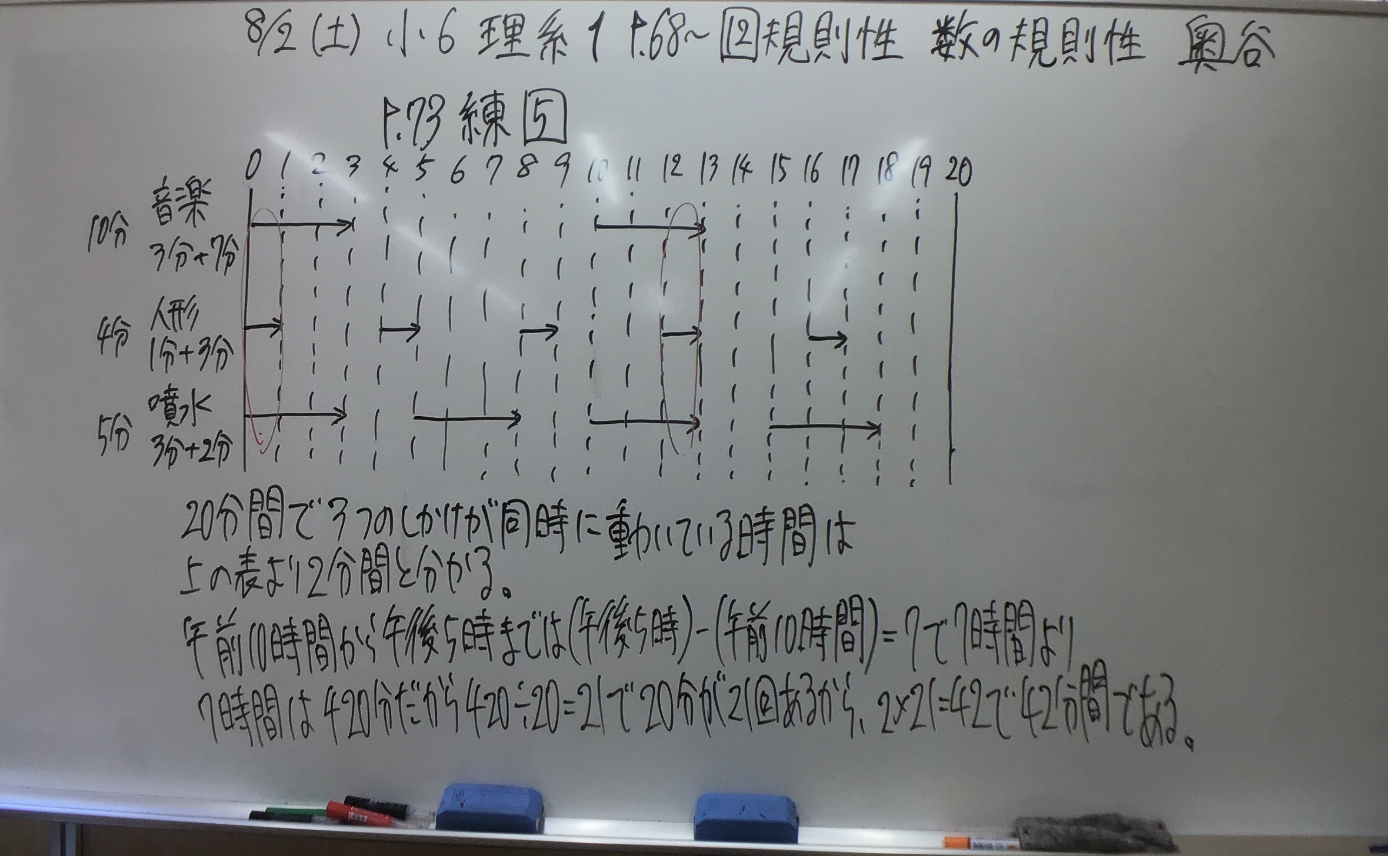 8/2(土) 小6 理系1 P.68~ 12 規則性 数の規則性 奥谷
P.73 練 5
0 1 2 3 4 5 6 7 8 9 10 11 12 13 14 15 16 17 18 19 20
10分 音楽
3分+7分
4分 人形
1分+3分
5分 噴水
3分+2分
20分間で3つのしかけが同時に動いている時間は
上の表より2分間と分かる。
午前10時間から午後5時までは(午後5時)-(午前10時間)=7で7時間より
7時間は420分だから420÷20=21で20分が21回あるから、2×21=42で42分間である。